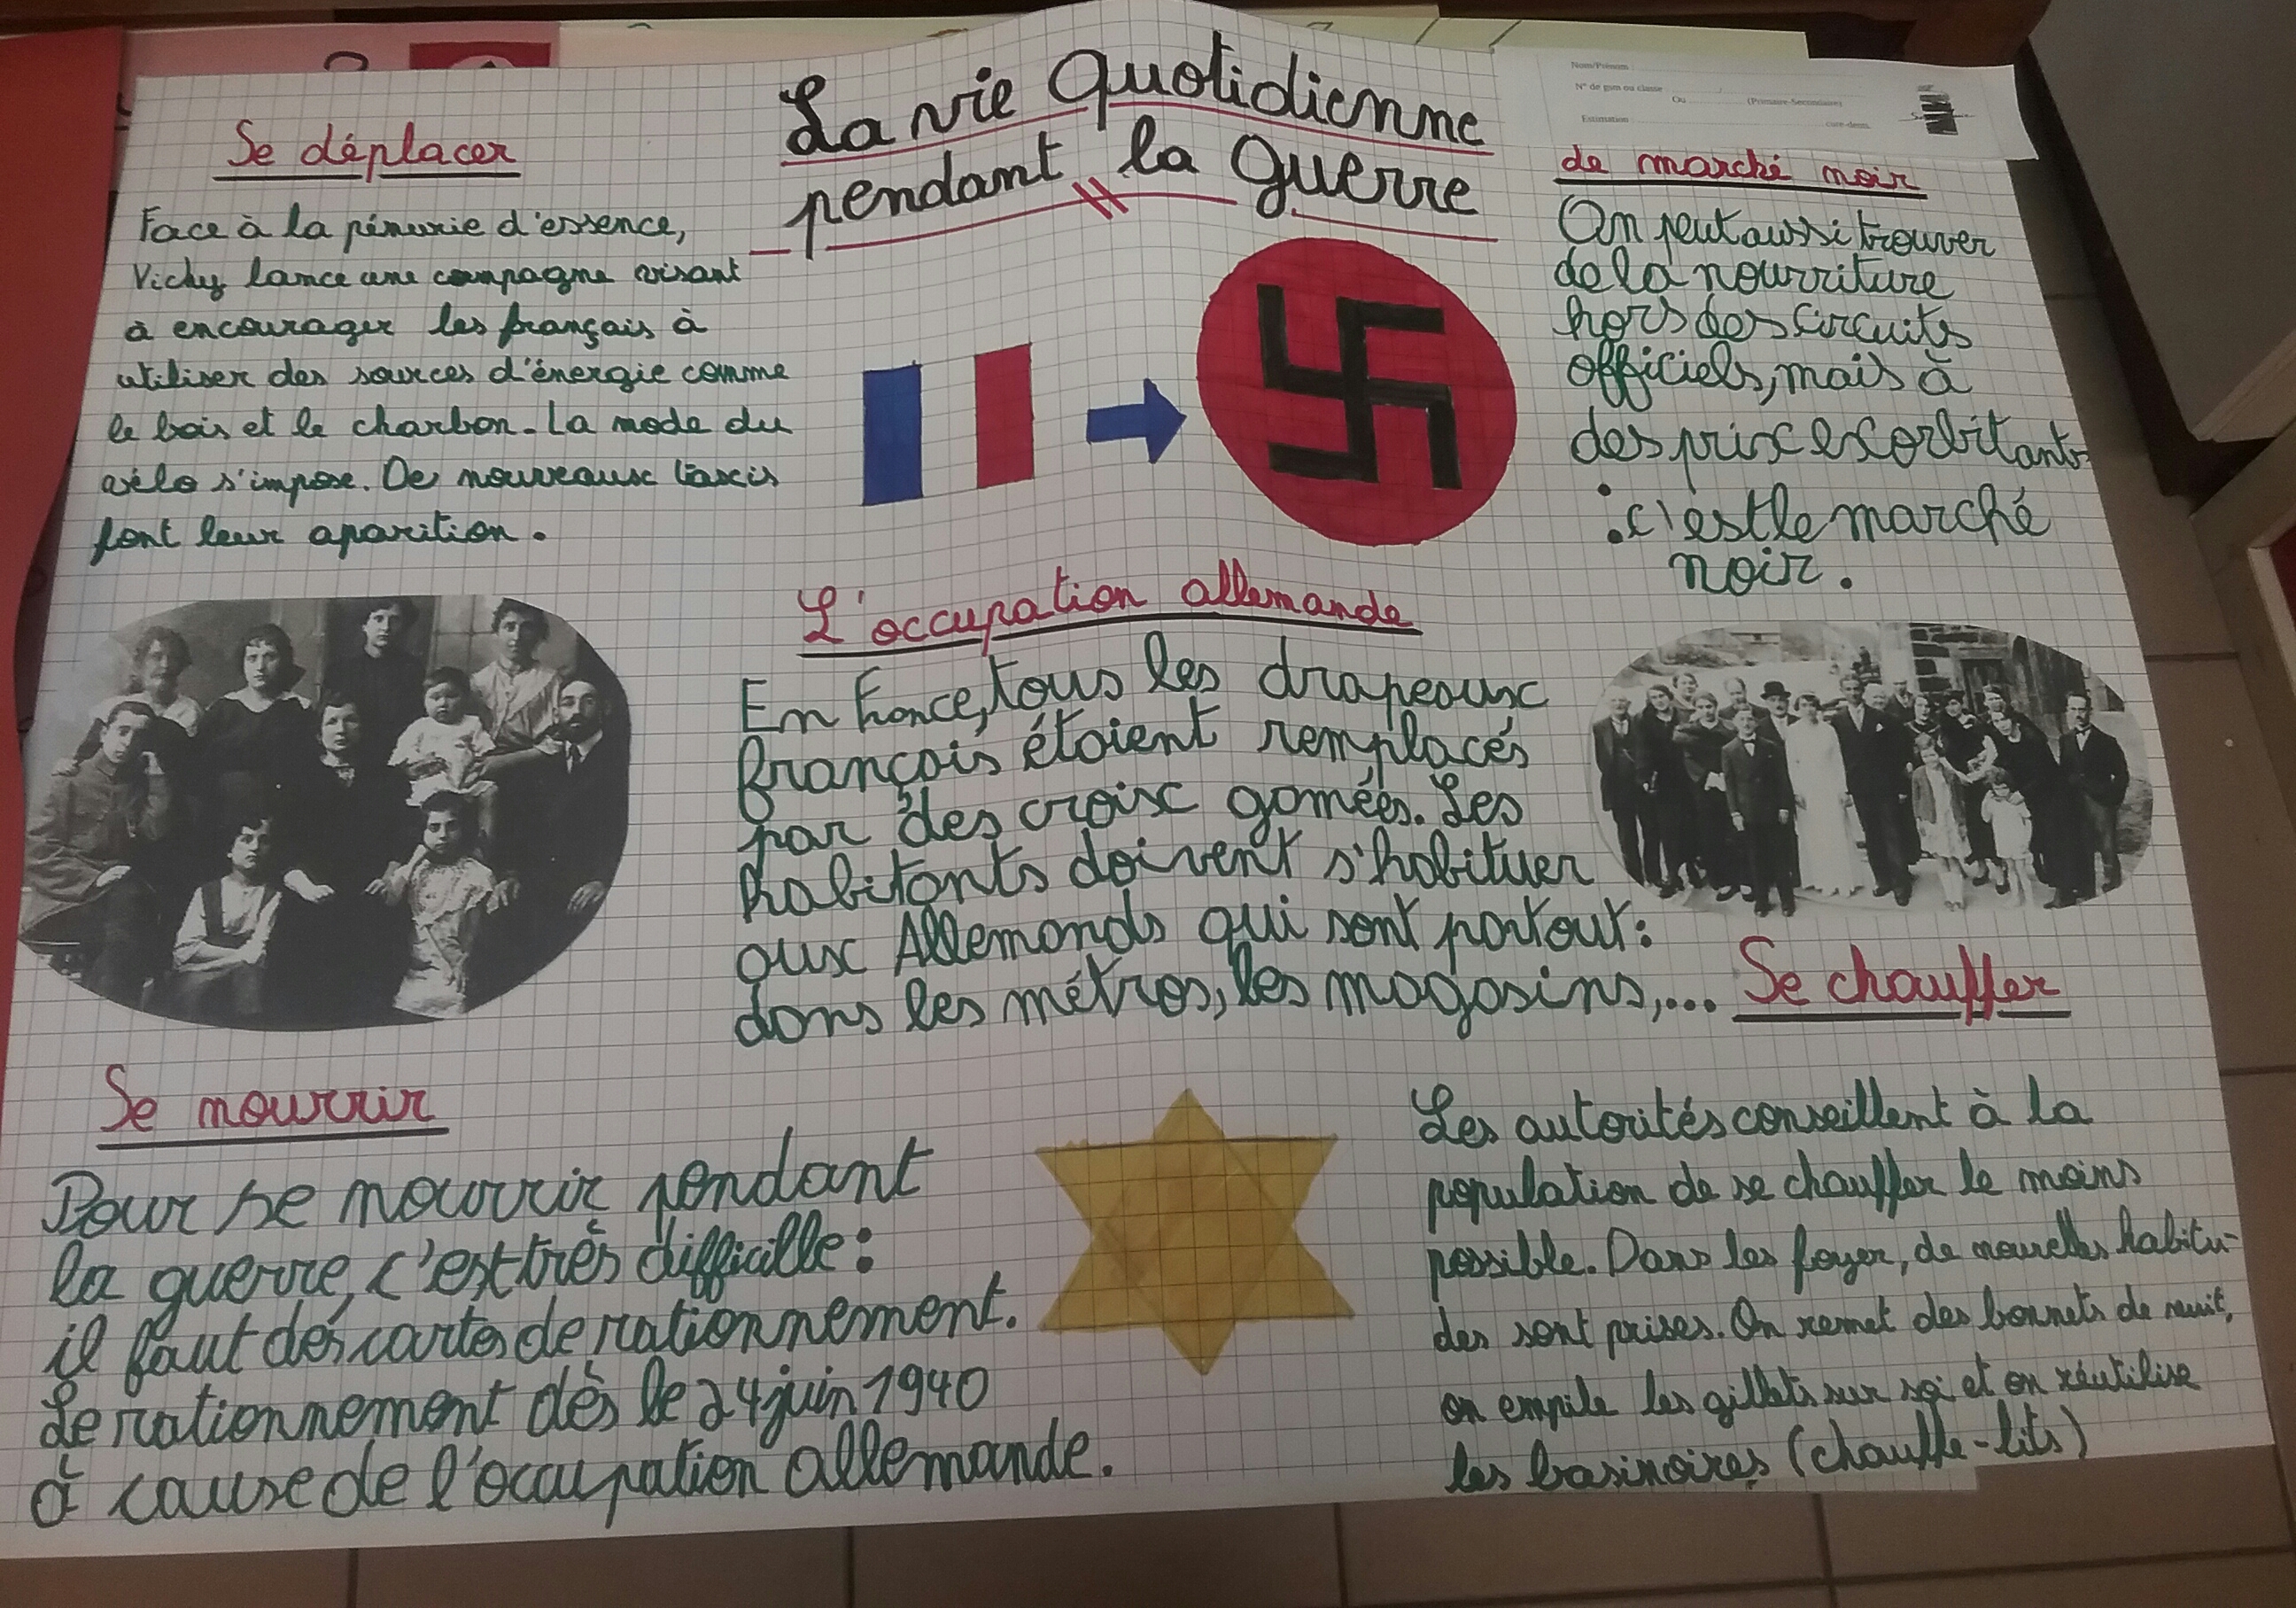 La vie Quotidienne
pendant la Guerre
Se déplacer
Face à la pénurie d'essence,
Vichy lance une campagne visant
à encourager les français à
utiliser des sources d'énergie comme
le bois et le charbon. La mode du
vélo s'impose. De nouveaux taxis
font leur aparition.
Nom/Prénom
N° de gsm ou classe
Ou (Primaire-Secondaire)
Estimation cure-dents.
de marché noir
On peut aussi trouver
de la nourriture
hors des circuits
officiels, mais à
des prix exorbitants
: c'est le marché
noir.
L'occupation allemande
En France, tous les drapeaux
français étaient remplacés
par des croix gamées. Les
habitants doivent s'habituer
aux Allemands qui sont partout:
dans les métros, les magasins,...
Se nourrir
Pour se nourrir pendant
la guerre, c'est très difficille:
il faut des cartes de rationnement.
Le rationnement dès le 24 juin 1940
à cause de l'occupation allemande.
Se chauffer
Les autorités conseillent à la
population de se chauffer le moins
possible. Dans les foyer, de nouvelles habitu-
des sont prises. On remet des bonnets de nuit,
on empile les gillets sur soi et on réutilise
les basinoires (chauffe-lits)